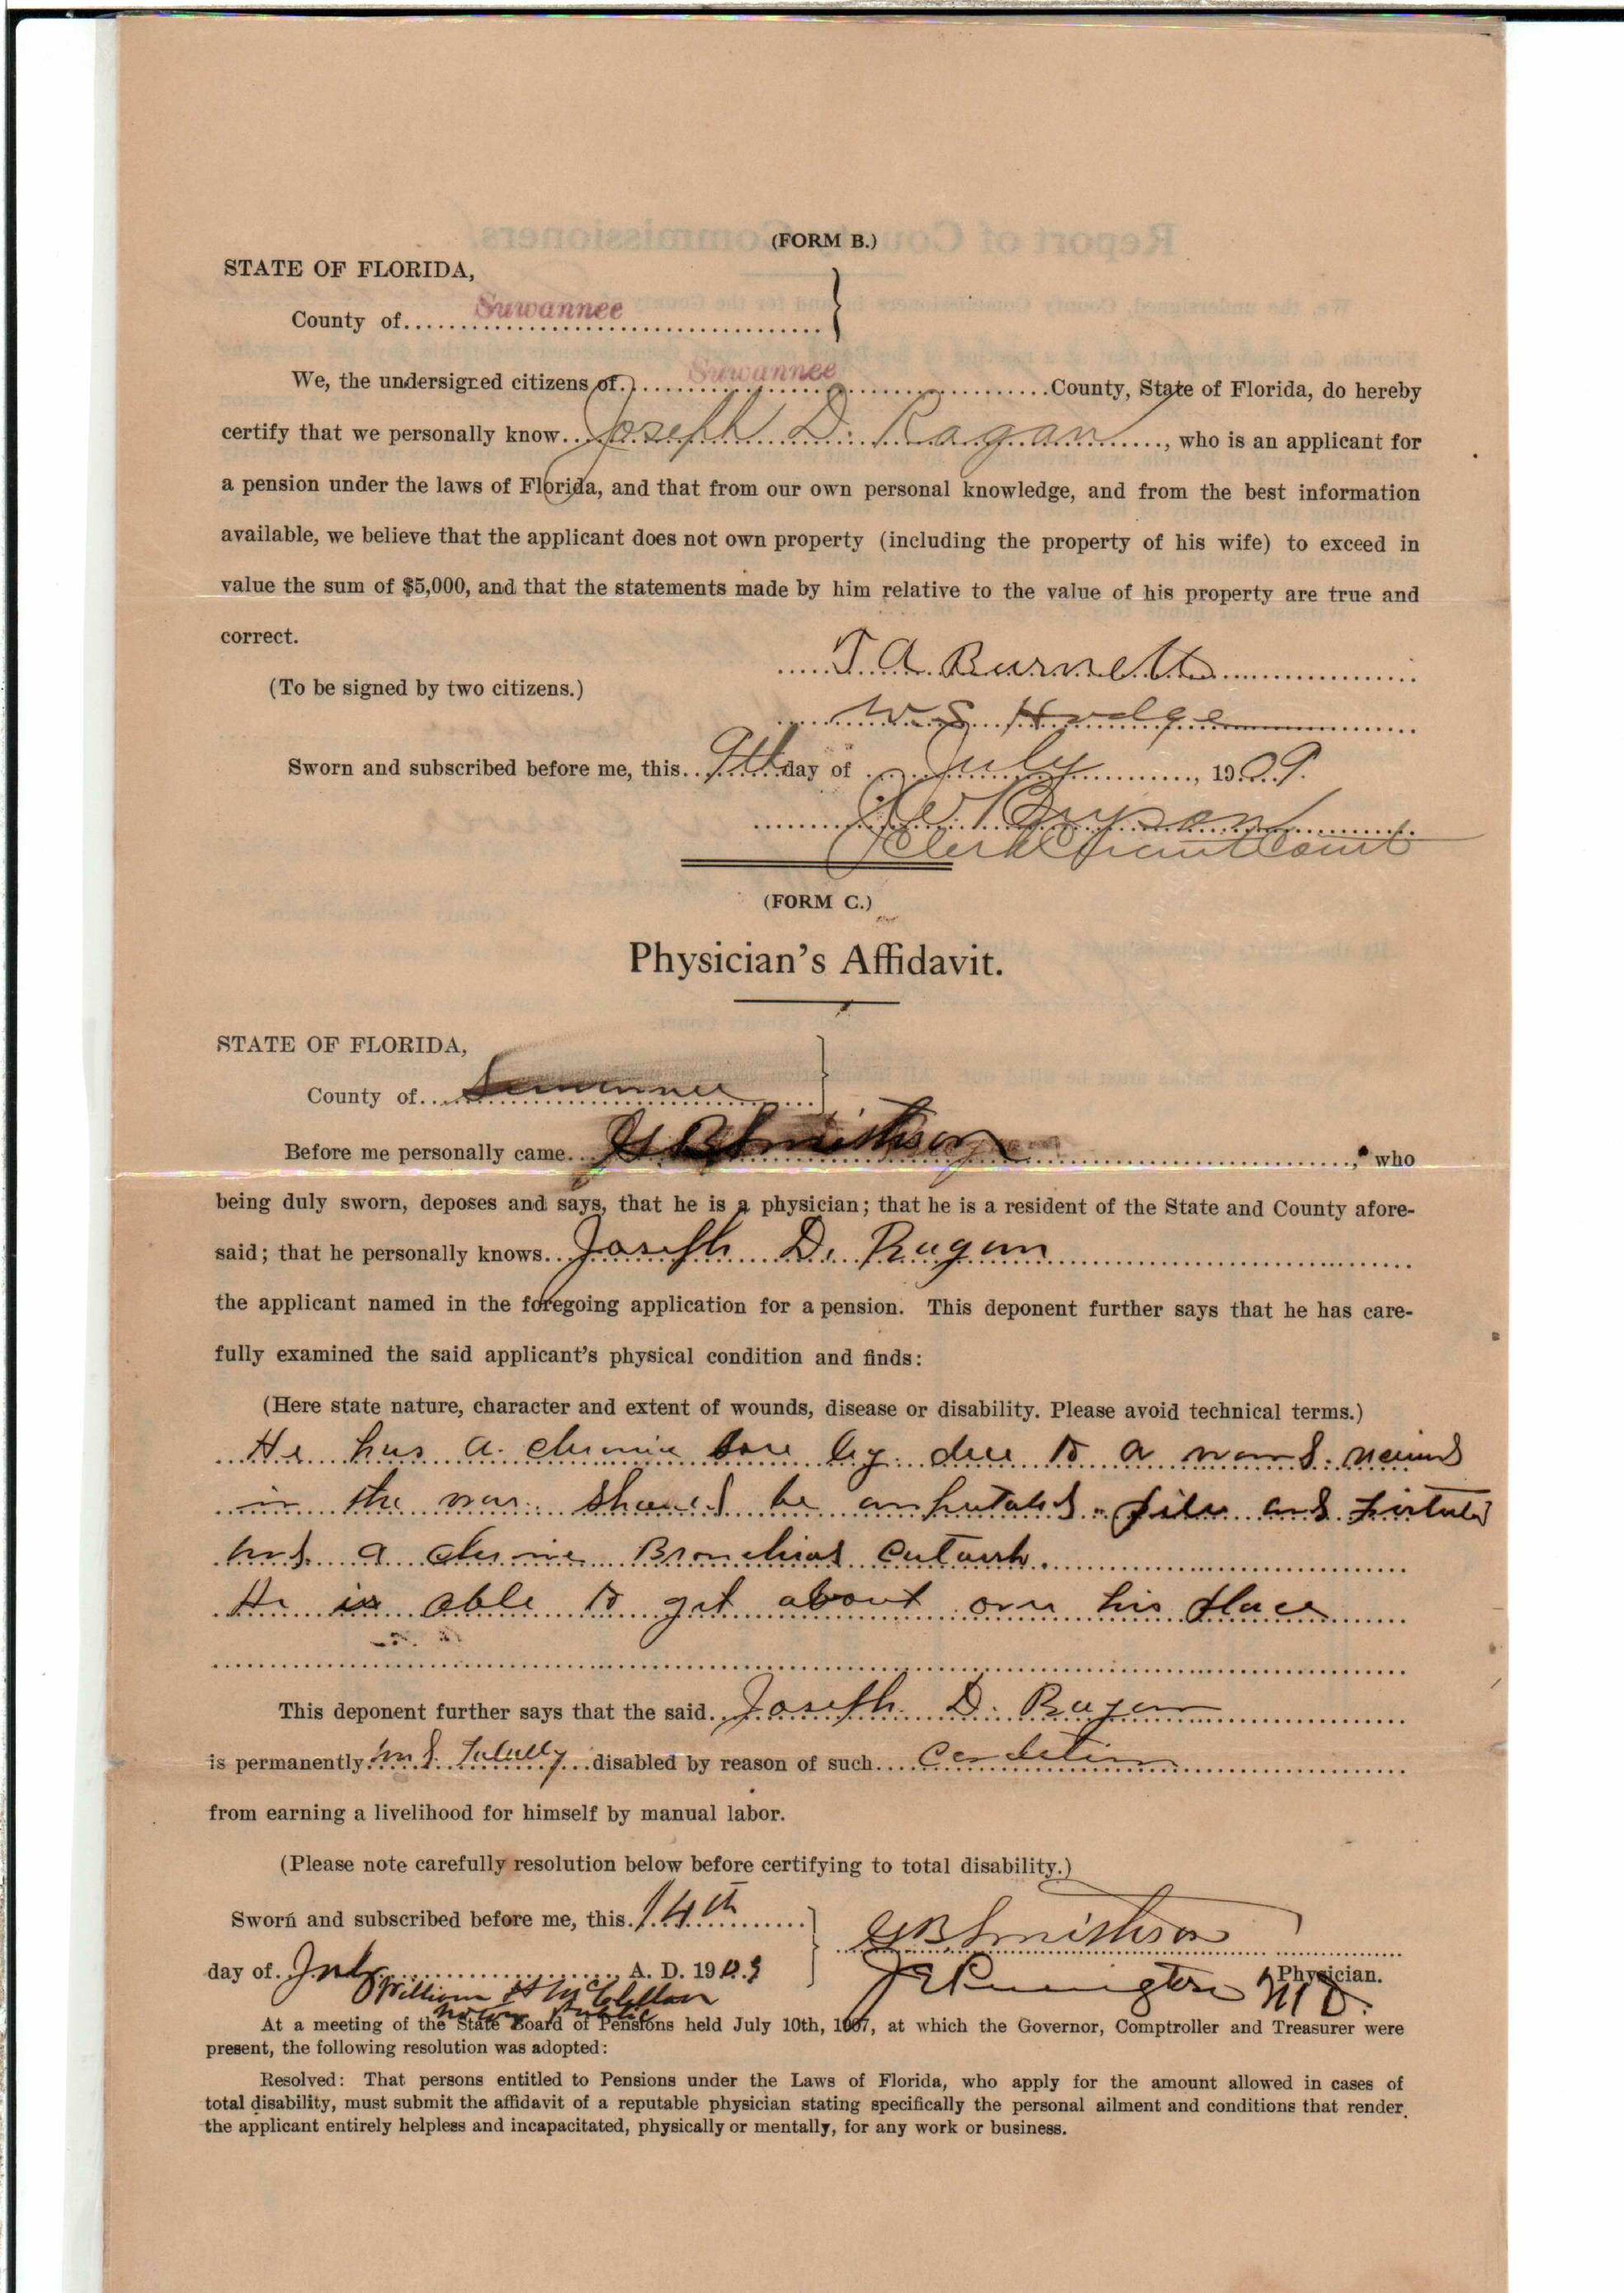 (FORM B.)
STATE OF FLORIDA,
County of Suwannee
We, the undersigned citizens of Suwannee County, State of Florida, do hereby
certify that we personally know Joseph D. Ragan, who is an applicant for
a pension under the laws of Florida, and that from our own personal knowledge, and from the best information
available, we believe that the applicant does not own property (including the property of his wife) to exceed in
value the sum of $5,000, and that the statements made by him relative to the value of his property are true and
correct.
T A Burnett
(To be signed by two citizens.)
W S Hodge
Sworn and subscribed before me, this 9th day of July, 1909.
Bryson
Clerk Circuit Court
(FORM C.)
Physician's Affidavit.
STATE OF FLORIDA,
County of Suwannee
Before me personally came G B Smithson, who
being duly sworn, deposes and says, that he is a physician; that he is a resident of the State and County afore-
said; that he personally knows Joseph D. Ragan
the applicant named in the foregoing application for a pension. This deponent further says that he has care-
fully examined the said applicant's physical condition and finds:
(Here state nature, character and extent of wounds, disease or disability. Please avoid technical terms.)
He has a chronic sore leg due to a wound received
in the war. Should be amputated. piles and fistula
and a chronic Bronchial Catarrh.
He is able to get about over his place
This deponent further says that the said Joseph D. Ragan
is permanently and totally disabled by reason of such Condition
from earning a livelihood for himself by manual labor.
(Please note carefully resolution below before certifying to total disability.)
Sworn and subscribed before me, this 14th
G B Smithson
day of July A. D. 1909
Physician.
J E Pennington M D.
William H McClellan
Notary Public
At a meeting of the State Board of Pensions held July 10th, 1907, at which the Governor, Comptroller and Treasurer were
present, the following resolution was adopted:
Resolved: That persons entitled to Pensions under the Laws of Florida, who apply for the amount allowed in cases of
total disability, must submit the affidavit of a reputable physician stating specifically the personal ailment and conditions that render
the applicant entirely helpless and incapacitated, physically or mentally, for any work or business.